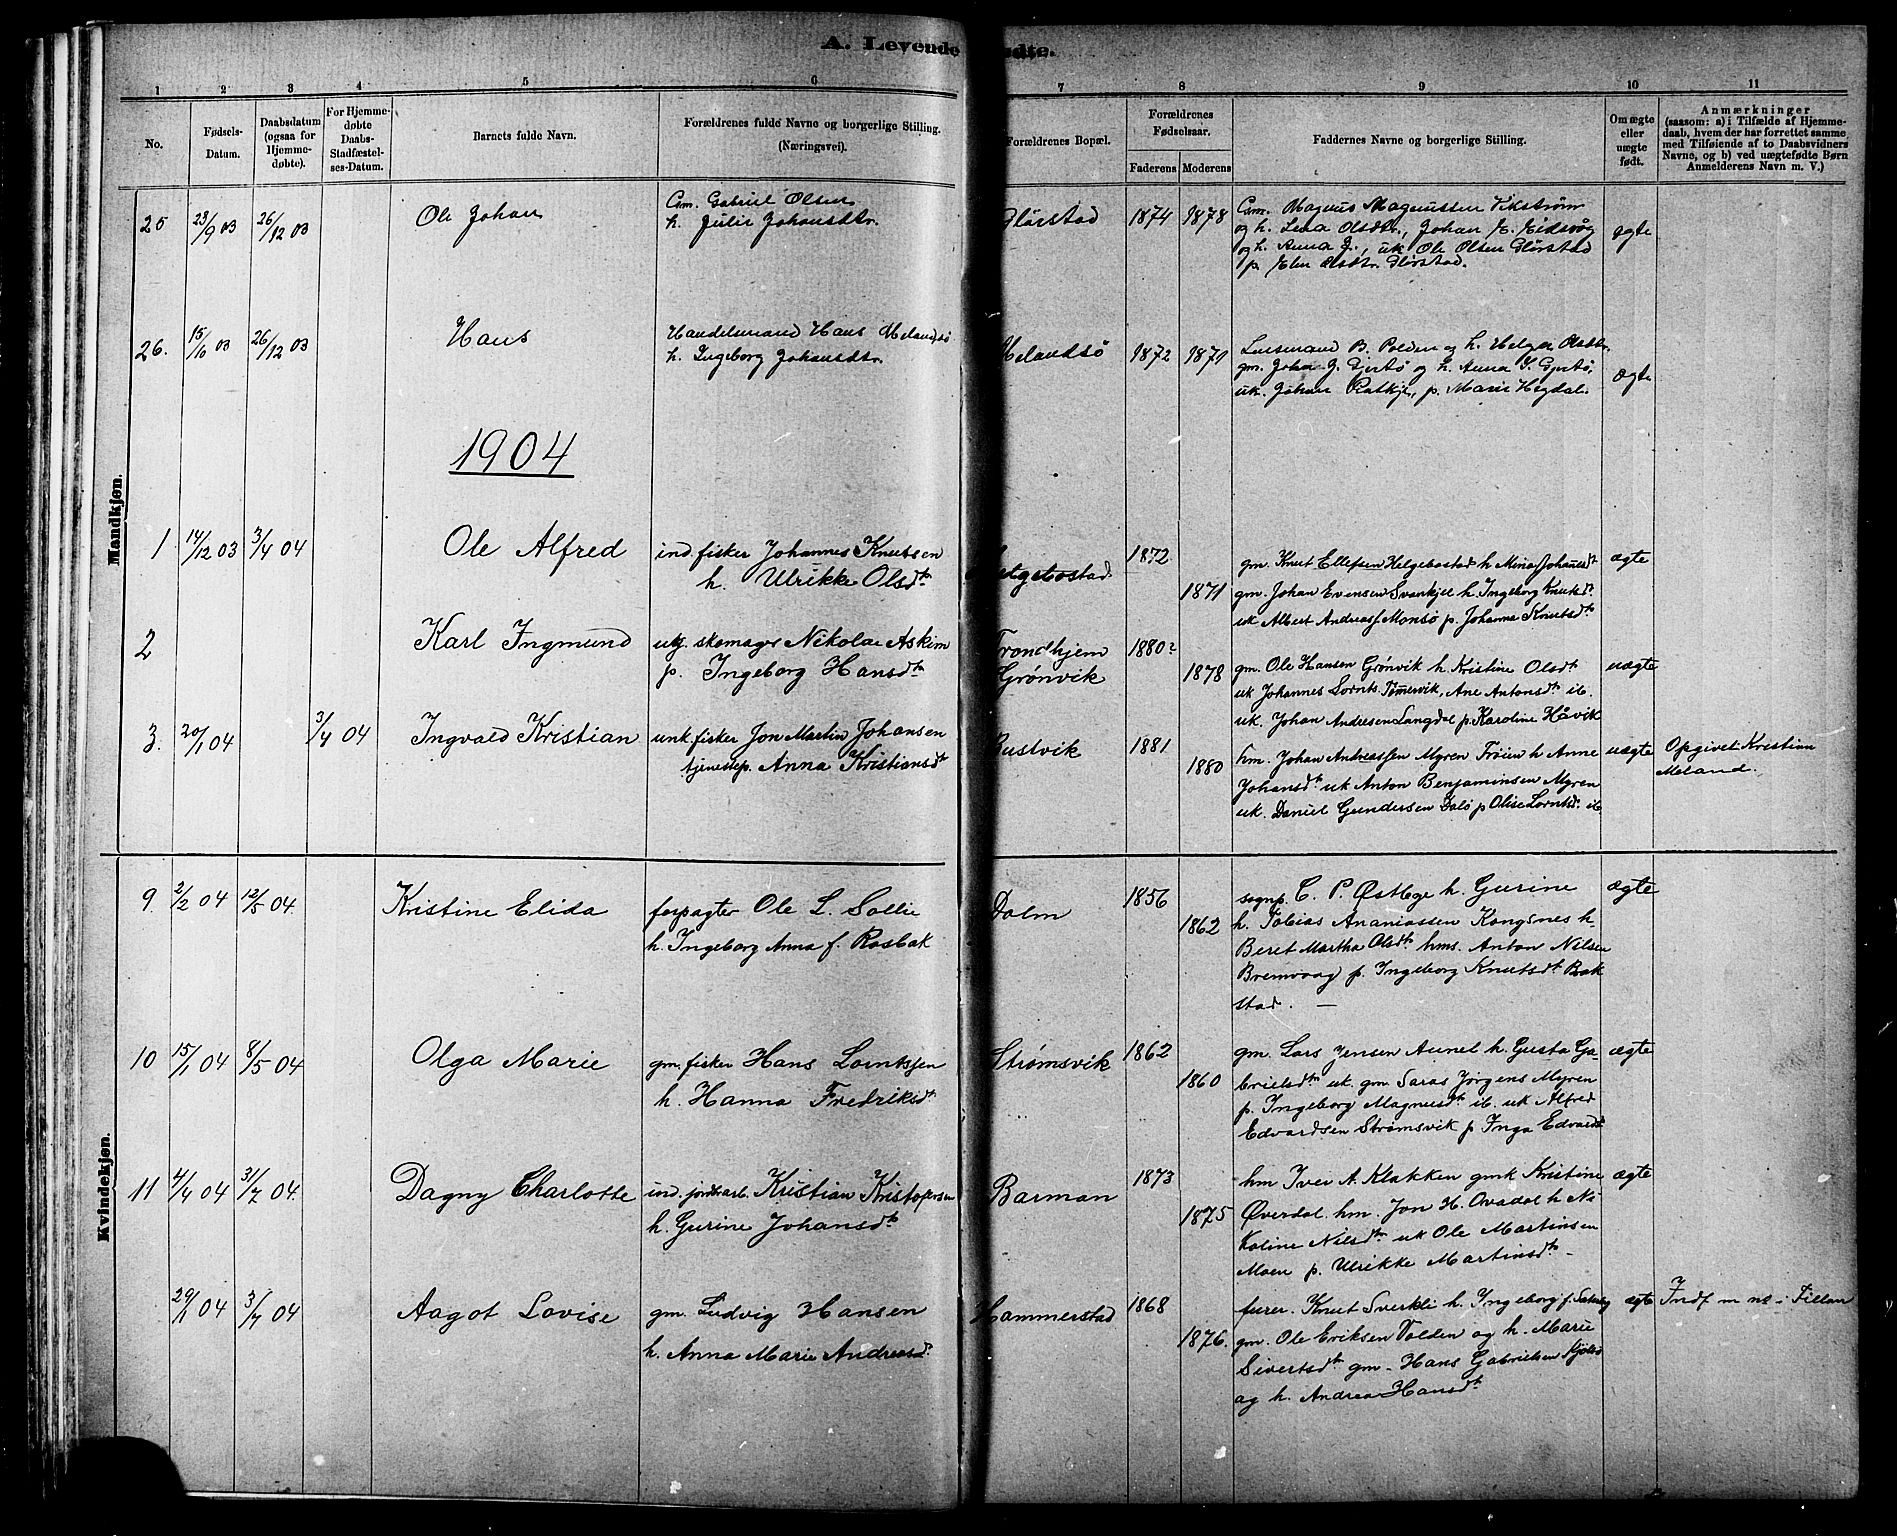 A. Levende
ødte.
1 2 3 4 5 6 7 8 9 10 11
No.
Fødsels-
Datum.
Daabsdatum
(ogsaa for
Hjemme-
døbte).
For Hjemme-
døbte
Daabs-
Stadfæstel-
ses-Datum.
Barnets fulde Navn.
Forældrenes fulde Navne og borgerlige Stilling.
(Næringsvei).
Forældrenes Bopæl.
Forældrenes
Fødselsaar.
Faderens
Moderens
Faddernes Navne og borgerlige Stilling.
Om ægte
eller
uægte
født.
Anmærkninger
(saasom: a) i Tilfælde af Hjemme-
daab, hvem der har forrettet samme,
med Tilføiende af to Daabsvidners
Navne, og b) ved uægtefødte Børn
Anmelderens Navn m. V.)
Mandkjøn.
25 23/9 03 26/12 03 Ole Johan
Gm. Gabriel Olsen
h. Julie Johansdtr.
Glørstad 1874 1878
Gm. Magnus Magnussen Vikstrøm
og h. Lena Olsdtr., Johan E. Eidsvåg
og h. Anna J., uk Ole Olsen Glørstad
p. Elen Olsdtr. Glørstad.
ægte
26. 15/10 03 26/12 03 Hans
Handelsmand Hans Melandsø
h. Ingeborg Johansdtr.
Melandsø 1872 1879
Lensmand B. Polden og h. Helga Olsdtr.
gm. Johan J. Gjertø og h. Anna Gjertø,
uk. Johan Ratkje, p. Marie Hegdal.
ægte
1904
1 14/12 03 3/4 04 Ole Alfred
ind. fisker Johannes Knutsen
h. Ulrikke Olsdtr
Helgebostad 1872 1871
gm. Knut Ellefsen Helgebostad h Mina Johansdtr
gm. Johan Evensen Svankjel h Ingeborg Knutsdtr
uk Albert Andreasf Monsø p. Johanna Knutsdtr
ægte
2 Karl Ingmund
utg. skomager Nikolai Askim
p. Ingeborg Hansdtr
Trondhjem 1880?
Grønvik 1878
gm. Ole Hansen Grønvik h. Kristine Olsdtr
uk Johannes Lornts. Tømervik, Ane Antonsdtr ib.
uk. Johan Andersen Langdal p. Karoline Håvik
uægte
3. 20/1 04 3/4 04 Ingvald Kristian
unk fisker Jon Martin Johansen
tjenestep. Anna Kristiansdtr
Bustvik 1881 1880
hm. Johan Andreassen Myren Frøien h Anne
Johansdtr uk Anton Benjaminsen Myren
uk. Daniel Gundersen Dalø p Olise Lorntsdtr ib
uægte
Opgivet Kristian
Meland.
Kvindekjøn.
9. 2/2 04 12/5 04. Kristine Elida
forpagter Ole L. Sollie
h. Ingeborg Anna f. Rosbak
Dolm 1856 1862
sognp. C. P. Østlyge h. Gurine
h. Tobias Ananiassen Kongsnes h.
Beret Martha Olsdtr hms. Anton Nilsen
Bremvaag p. Ingeborg Knutsdtr Bak
stad. —
ægte
10 15/1 04 8/5 04 Olga Marie
gm. fisker Hans Lorntssen
h. Hanna Fredriksdtr
Strømsvik 1862 1860
gm. Lars Jensen Aunet h. Gusta Ga-
brielsdtr uk. gm. Saras Jørgens Myren
p. Ingeborg Magnusdtr ib. uk Alfred
Edvardsen Strømsvik p Inga Edvards
ægte
11 4/4 04 31/7 04. Dagny Charlotte
ind. jordarb. Kristian Kristofersen
h. Gurine Johansdtr
Barman 1873 1875
hm Iver A. Klakken gmk Kristine
Øverdal. hm. Jon H. Ovadal h Ni-
koline Nilsdtr uk Ole Martinsen
Moen p. Ulrikke Martinsdtr —
ægte
29/1 04 3/4 04 Aagot Lovise
gm. Ludvig Hansen
h. Anna Marie Andreasd.
Hammerstad 1868 1876.
furer. Knut Sverkli h. Ingeborg f.
gm. Ole Eriksen Volden og h. Marie
Sivertsdtr gm. Hans Gabrielsen
og h. Andrea Hansdtr
ægte
Indf m no i Fillan